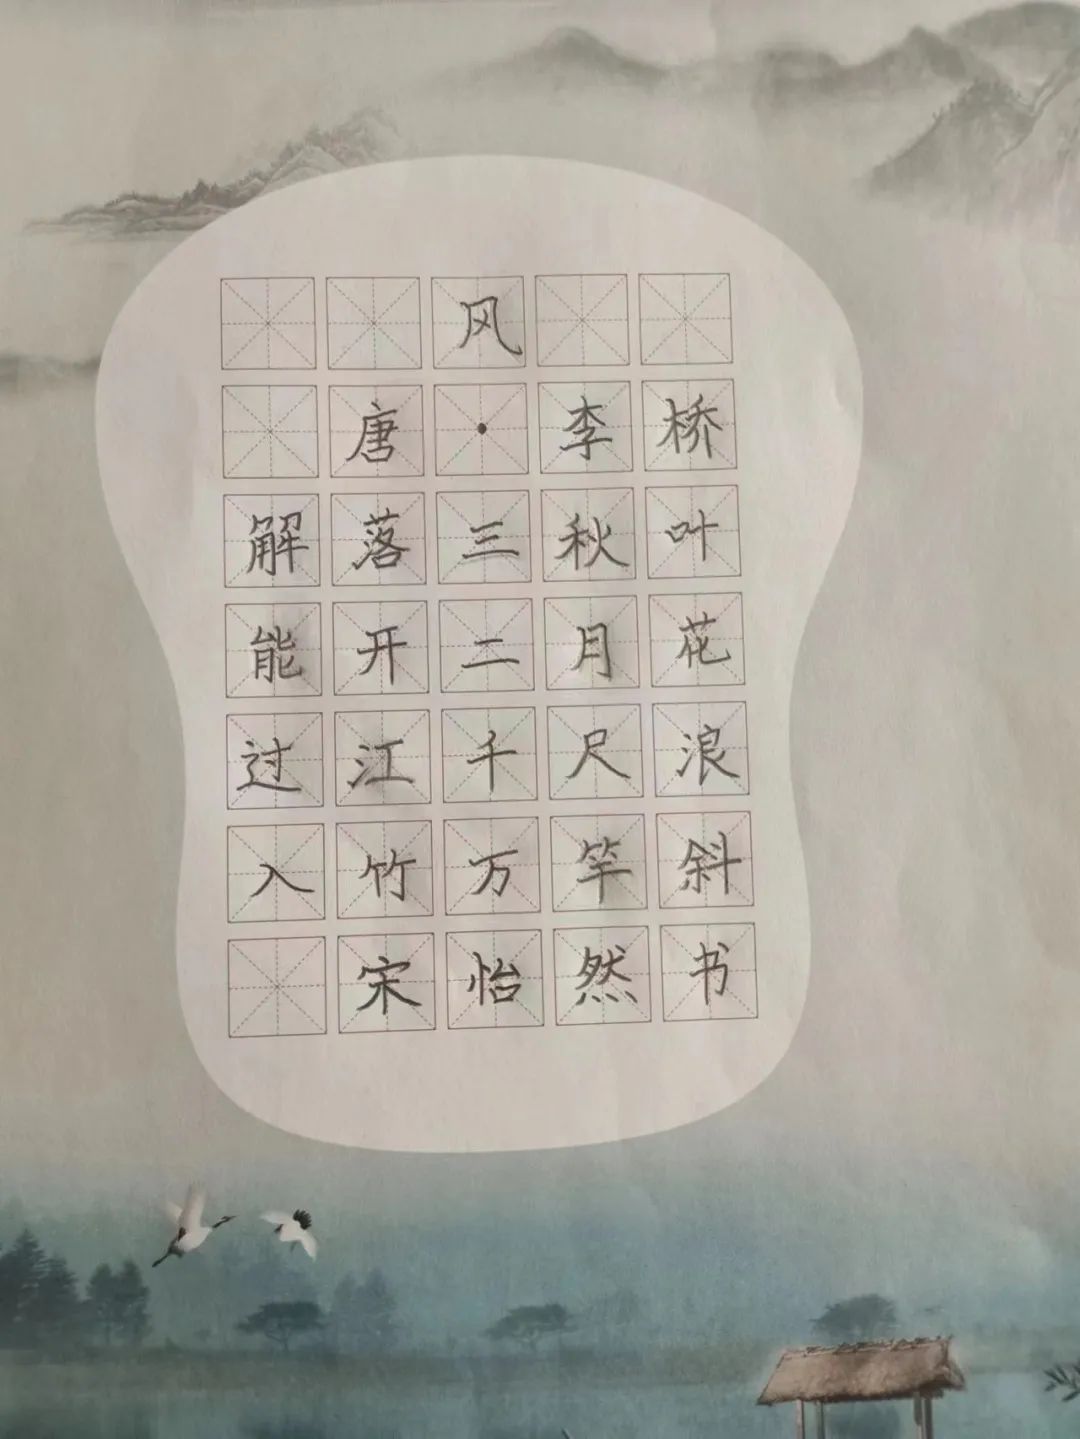 风
唐·李桥
解落三秋叶
能开二月花
过江千尺浪
入竹万竿斜
宋怡然书